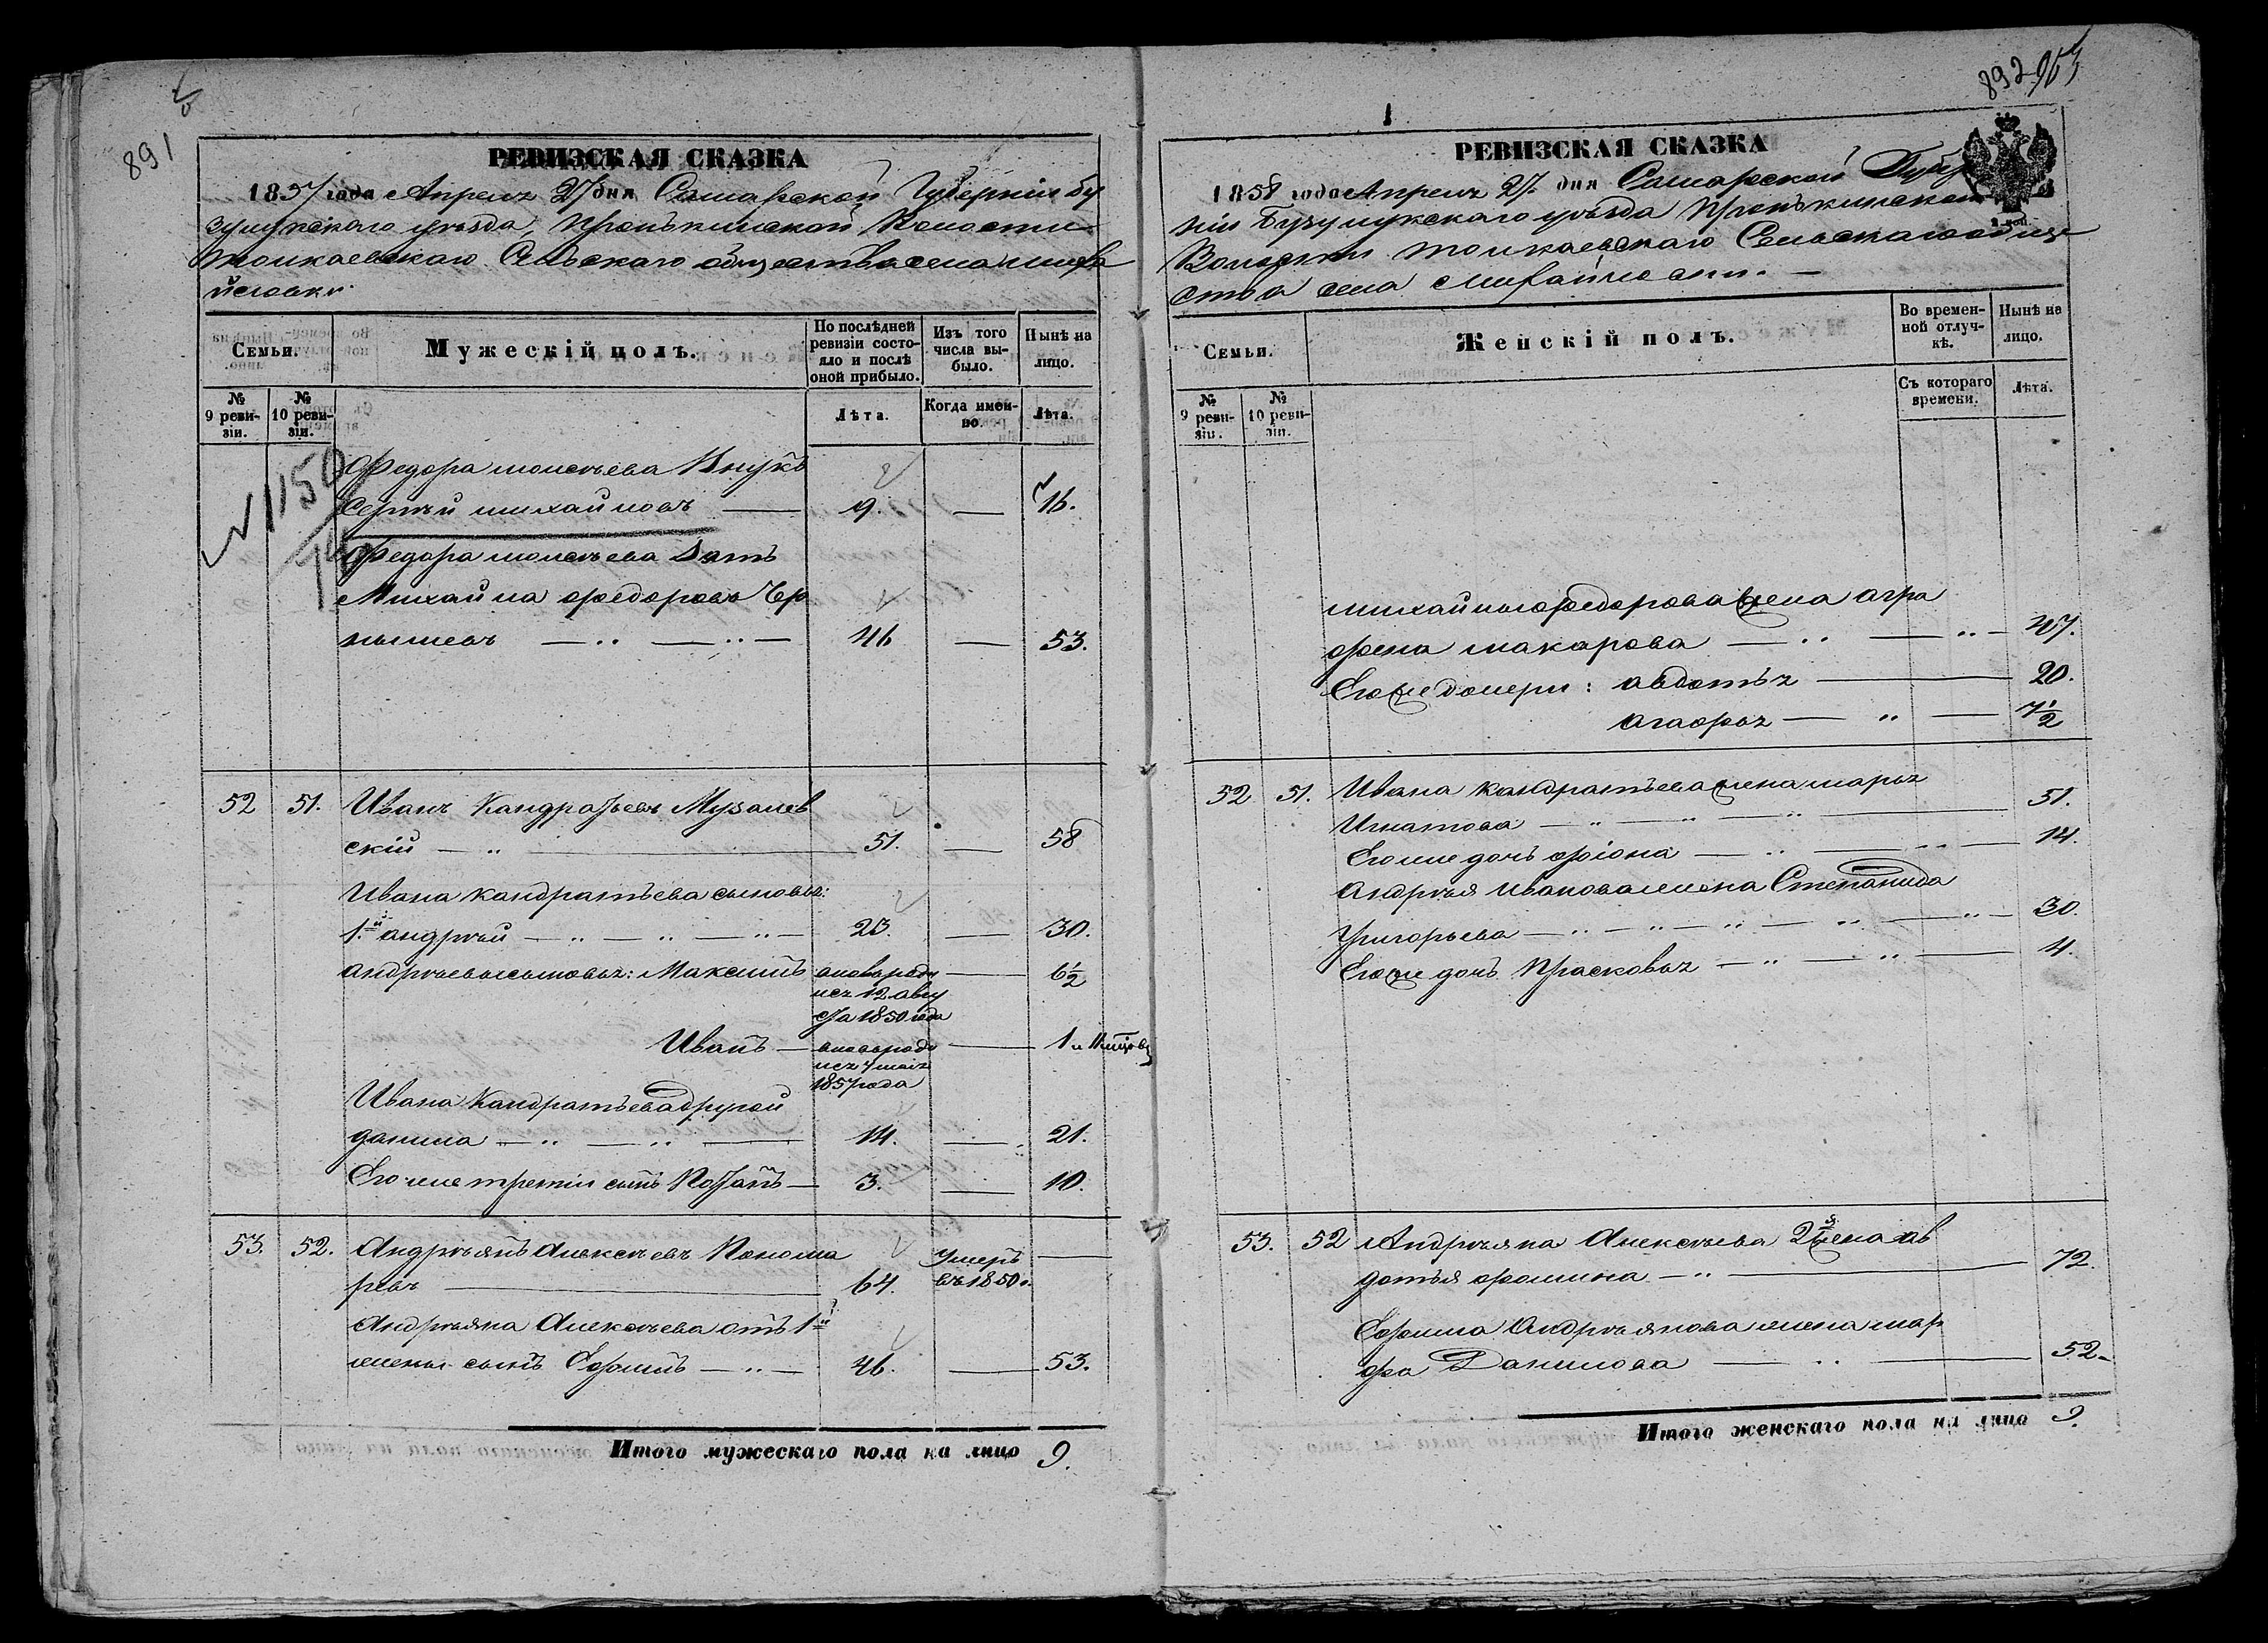 891
РЕВИЗСКАЯ СКАЗКА
1857 года Апреля 27 дня Самарской Губерніи Бу
зулукскаго уѣзда, Пронькинской Волости
Толкаевскаго Сельскаго общества села Михай
йловки.
Семьи.
Мужескій полъ.
По послѣдней ревизіи состояло и послѣ оной прибыло.
Изъ того числа выбыло.
Нынѣ на лицо.
№ 9 ревизіи.
№ 10 ревизіи.
Лѣта.
Когда именно.
Лѣта.
№ 1150
Федора Моисѣева Внукъ
Сергѣй Михайловъ — 9. — 16.
Федора Моисѣева Зять
Михайла Федоровъ Чер
нышевъ — 46 — 53.
52 51. Иванъ Кандратьевъ Музалев
скій — 51. — 58
Ивана Кандратьева сыновья:
1.й Андрѣй — 23. — 30.
Андрѣевы сыновья: Максимъ — 6½
послѣ 12 авгу
ста 1850 года
Иванъ — 1 и 11 мѣсяцовъ
1857 года
Ивана Кандратьева другой
Данила — 14. — 21.
Его же третій сынъ Потапъ — 3. — 10.
53. 52. Андрѣянъ Алексѣевъ Понома
ревъ — 64. Умеръ въ 1850 г. —
Андрѣяна Алексѣева отъ 1й
жены сынъ Ефимъ — 46. — 53.
Итого мужескаго пола на лицо 9.
892
РЕВИЗСКАЯ СКАЗКА
1858 года Апреля 27. дня Самарской Губер
ніи Бузулукскаго уѣзда Пронькинской
Волости Толкаевскаго Сельскаго обще
ства села Михайловки. —
Семьи.
Женскій полъ.
Во временной отлучкѣ.
Нынѣ на лицо.
№ 9 ревизіи.
№ 10 ревизіи.
Съ котораго времени.
Лѣта.
Михайлы Федорова жена Агра
фена Макарова — 47.
Его же дочери: Авдотья — 20.
Агафья — 7½
52 51. Ивана Кандратьева жена Марья
Игнатова — 51.
Его же дочь Фіона — 14.
Андрѣя Иванова жена Степанида
Григорьева — 30.
Его же дочь Прасковья — 4.
53. 52 Андрѣяна Алексѣева 2я жена Ав
дотья Фомина — 72.
Ефима Андрѣянова жена Мар
фа Данилова — 52.
Итого женскаго пола на лицо 9.